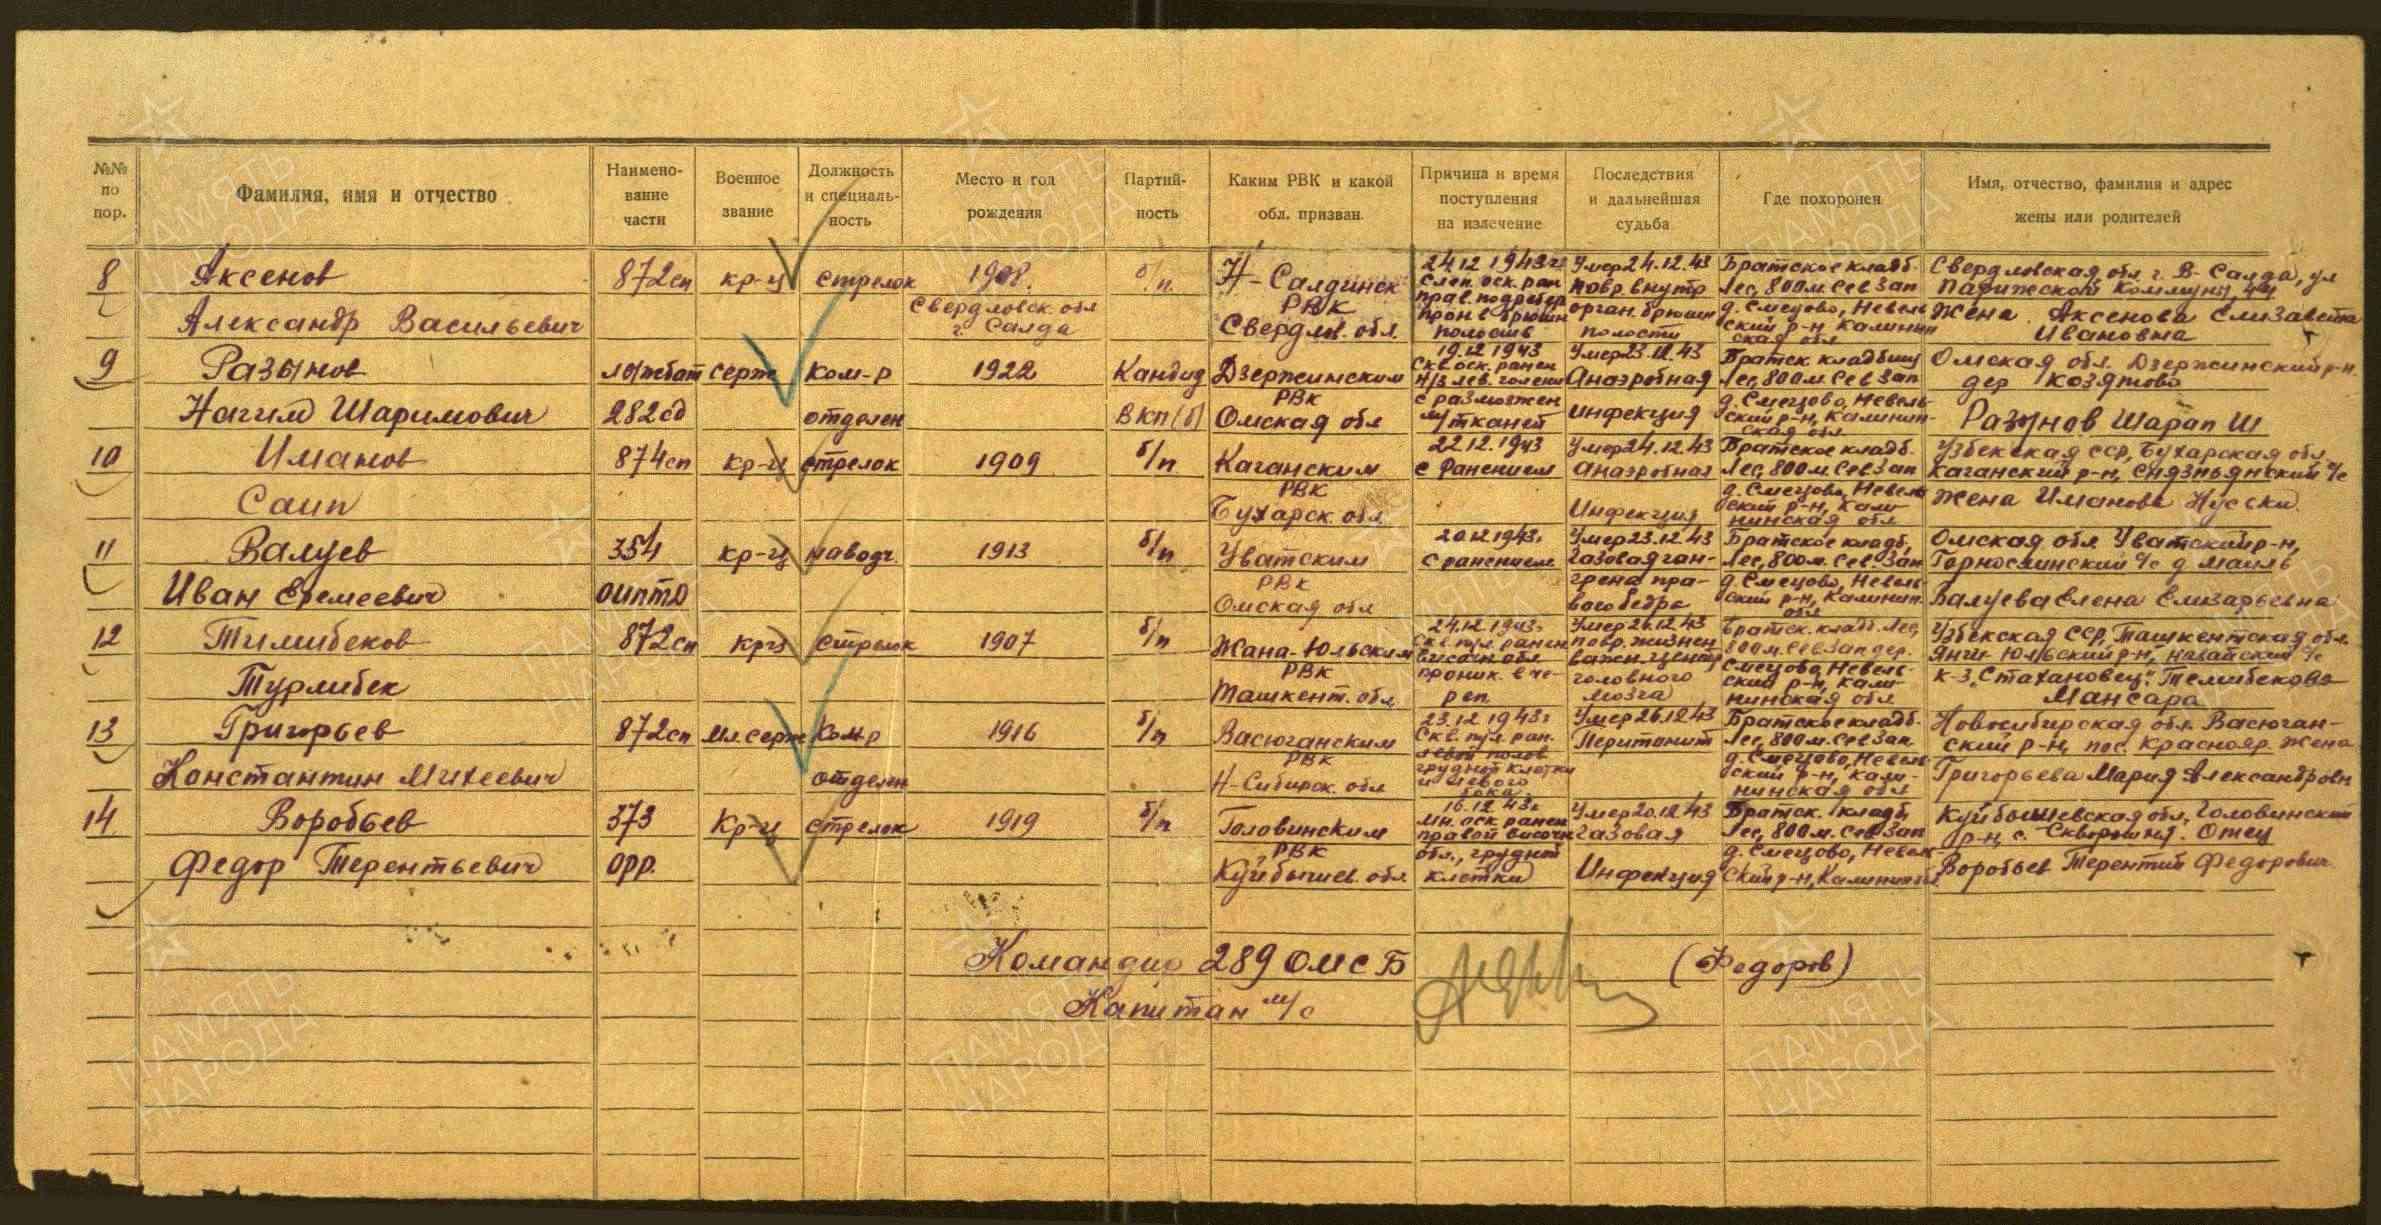 №№ по пор.
Фамилия, имя и отчество
Наимено-вание части
Военное звание
Должность и специаль-ность
Место и год рождения
Партий-ность
Каким РВК и какой обл. призван.
Причина и время поступления на излечение
Последствия и дальнейшая судьба
Где похоронен
Имя, отчество, фамилия и адрес жены или родителей
8 Аксенов 872 сп кр-ц стрелок 1908. б/п. Н-Салдинск 24.12.1943г Умер 24.12.43 Братское кладб. Свердловская обл г. В-Салда, ул
Слеп. оск. ран повр. внутр Лес, 800 м. Сев Зап Парижской Коммуны, 44
Александр Васильевич Свердловск. обл г. Салда РВК Свердлов. обл. прав. подребер прон. в брюшн полость орган. брюшн полости д. Смецово, Невель ский р-н, Калинин ская обл Жена Аксенова Елизавета
Ивановна
9 Разынов серж ком-р 1922 Кандид Дзержинским 19.12 1943 Умер 23.12.43 Братск. кладбищ Омская обл. Дзержинский р-н.
Скв. оск. ранен н/з лев. голени Анаэробная Лес, 800 м. Сев Зап дер Козятово
Нагим Шаримович 282 сд отделен ВКП(б) РВК Омская обл с размозжен м/тканей инфекция д. Смецово, Невель-ский р-н, Калинин-ская обл Разунов Шарап Ш
10 Иманов 874 сп кр-ц стрелок 1909 б/п Каганским 22.12.1943 Умер 24.12.43 Братское кладб. Узбекская ССР, Бухарская обл
с ранением анаэробная Лес, 800 м. Сев Зап Каганский р-н, с/с
Саип РВК Бухарск. обл Инфекция д. Смецово, Невель ский р-н, Кали-нинская обл Жена Иманова
11 Валуев 354 кр-ц наводч. 1913 б/п Уватским 20.12.1943г Умер 23.12.43 Братское кладб, Омская обл Уватский р-н,
с ранением Газовая ган- Лес, 800 м. Сев. Зап Горнослинский с/с д Маиль
Иван Еремеевич оиптд РВК Омская обл грена пра-вого бедра д. Смецово, Невель-ский р-н, Калинин. обл Валуева Елена Елизарьевна
12 Тилибеков 872 сп кр-ц стрелок 1907 б/п Жана-Юльским 24.12.1943г Умер 26.12.43 Братск. кладб. Лес, Узбекская ССР, Ташкентская обл.
Скв. пул. ранен височн обл повр. жизнен важн. центр 800 м. Сев Зап дер. Янги-Юльский р-н, с/с
Турлибек РВК Ташкент. обл. проник. в че-реп головного мозга Смецово Невель-ский р-н, Кали-нинская обл к-з „Стахановец" Темибекова
Мансара
13 Григорьев 872 сп Мл. серж Ком-р 1916 б/п Васюганским 23.12.1943г Умер 26.12.43 Братское кладб. Новосибирская обл. Васюган-
Скв. пул. ран. Перитонит Лес, 800 м. Сев Зап ский р-н, пос. Краснояр. Жена
Константин Михеевич отделен РВК Н-Сибирск. обл грудной клетки и левого бока. д. Смецово, Невель ский р-н, Кали-нинская обл Григорьева Мария Александровн
14 Воробьев 373 Кр-ц стрелок 1919 б/п Головинским 16.12.43г Умер 20.12.43 Братск. кладб, Куйбышевская обл, Головинский
Мн. оск. ранен правой височн газовая Лес, 800 м. Сев Зап р-н, с. Отец
Федор Терентьевич орр. РВК Куйбышев. обл обл., грудной клетки Инфекция д. Смецово, Невель ский р-н, Воробьев Терентий Федорович
Командир 289 ОМСБ (Федоров)
Капитан м/с
ПАМЯТЬ НАРОДА